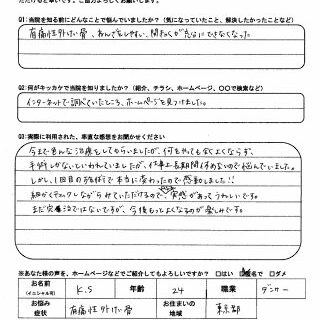 Q1:当院を知る前にどんなことで悩んでいましたか?(気になっていたこと、解決したかったことなど)
有痛性外けい骨、ねんざをしやすい、
Q2:何がキッカケで当院を知りましたか?(紹介、チラシ、ホームページ、〇〇で検索など)
インターネットで調べていたところ、ホームページを見つけました。
Q3:実際に利用された、率直な感想をお聞かせください
今まで色んな治療をしてもらいましたが、何をやっても良くならず、
手術しかないといわれていましたが、仕事上長期間休めないので悩んでいました。
しかし、1回目の施術で本当に変わったので感動しました!!
細かくチェックしながらみていただけるので、実感があってうれしいです。
まだ完治ではないですが、今後もっとよくなるのが楽しみです。
※あなた様の声を、ホームページなどでご紹介してもよろしいですか? □はい 匿名で □ダメ
お名前
(イニシャル可)
K.S
年齢
24
職業
ダンサー
お悩み
症状
有痛性外けい骨
お住まいの
地域
東京都